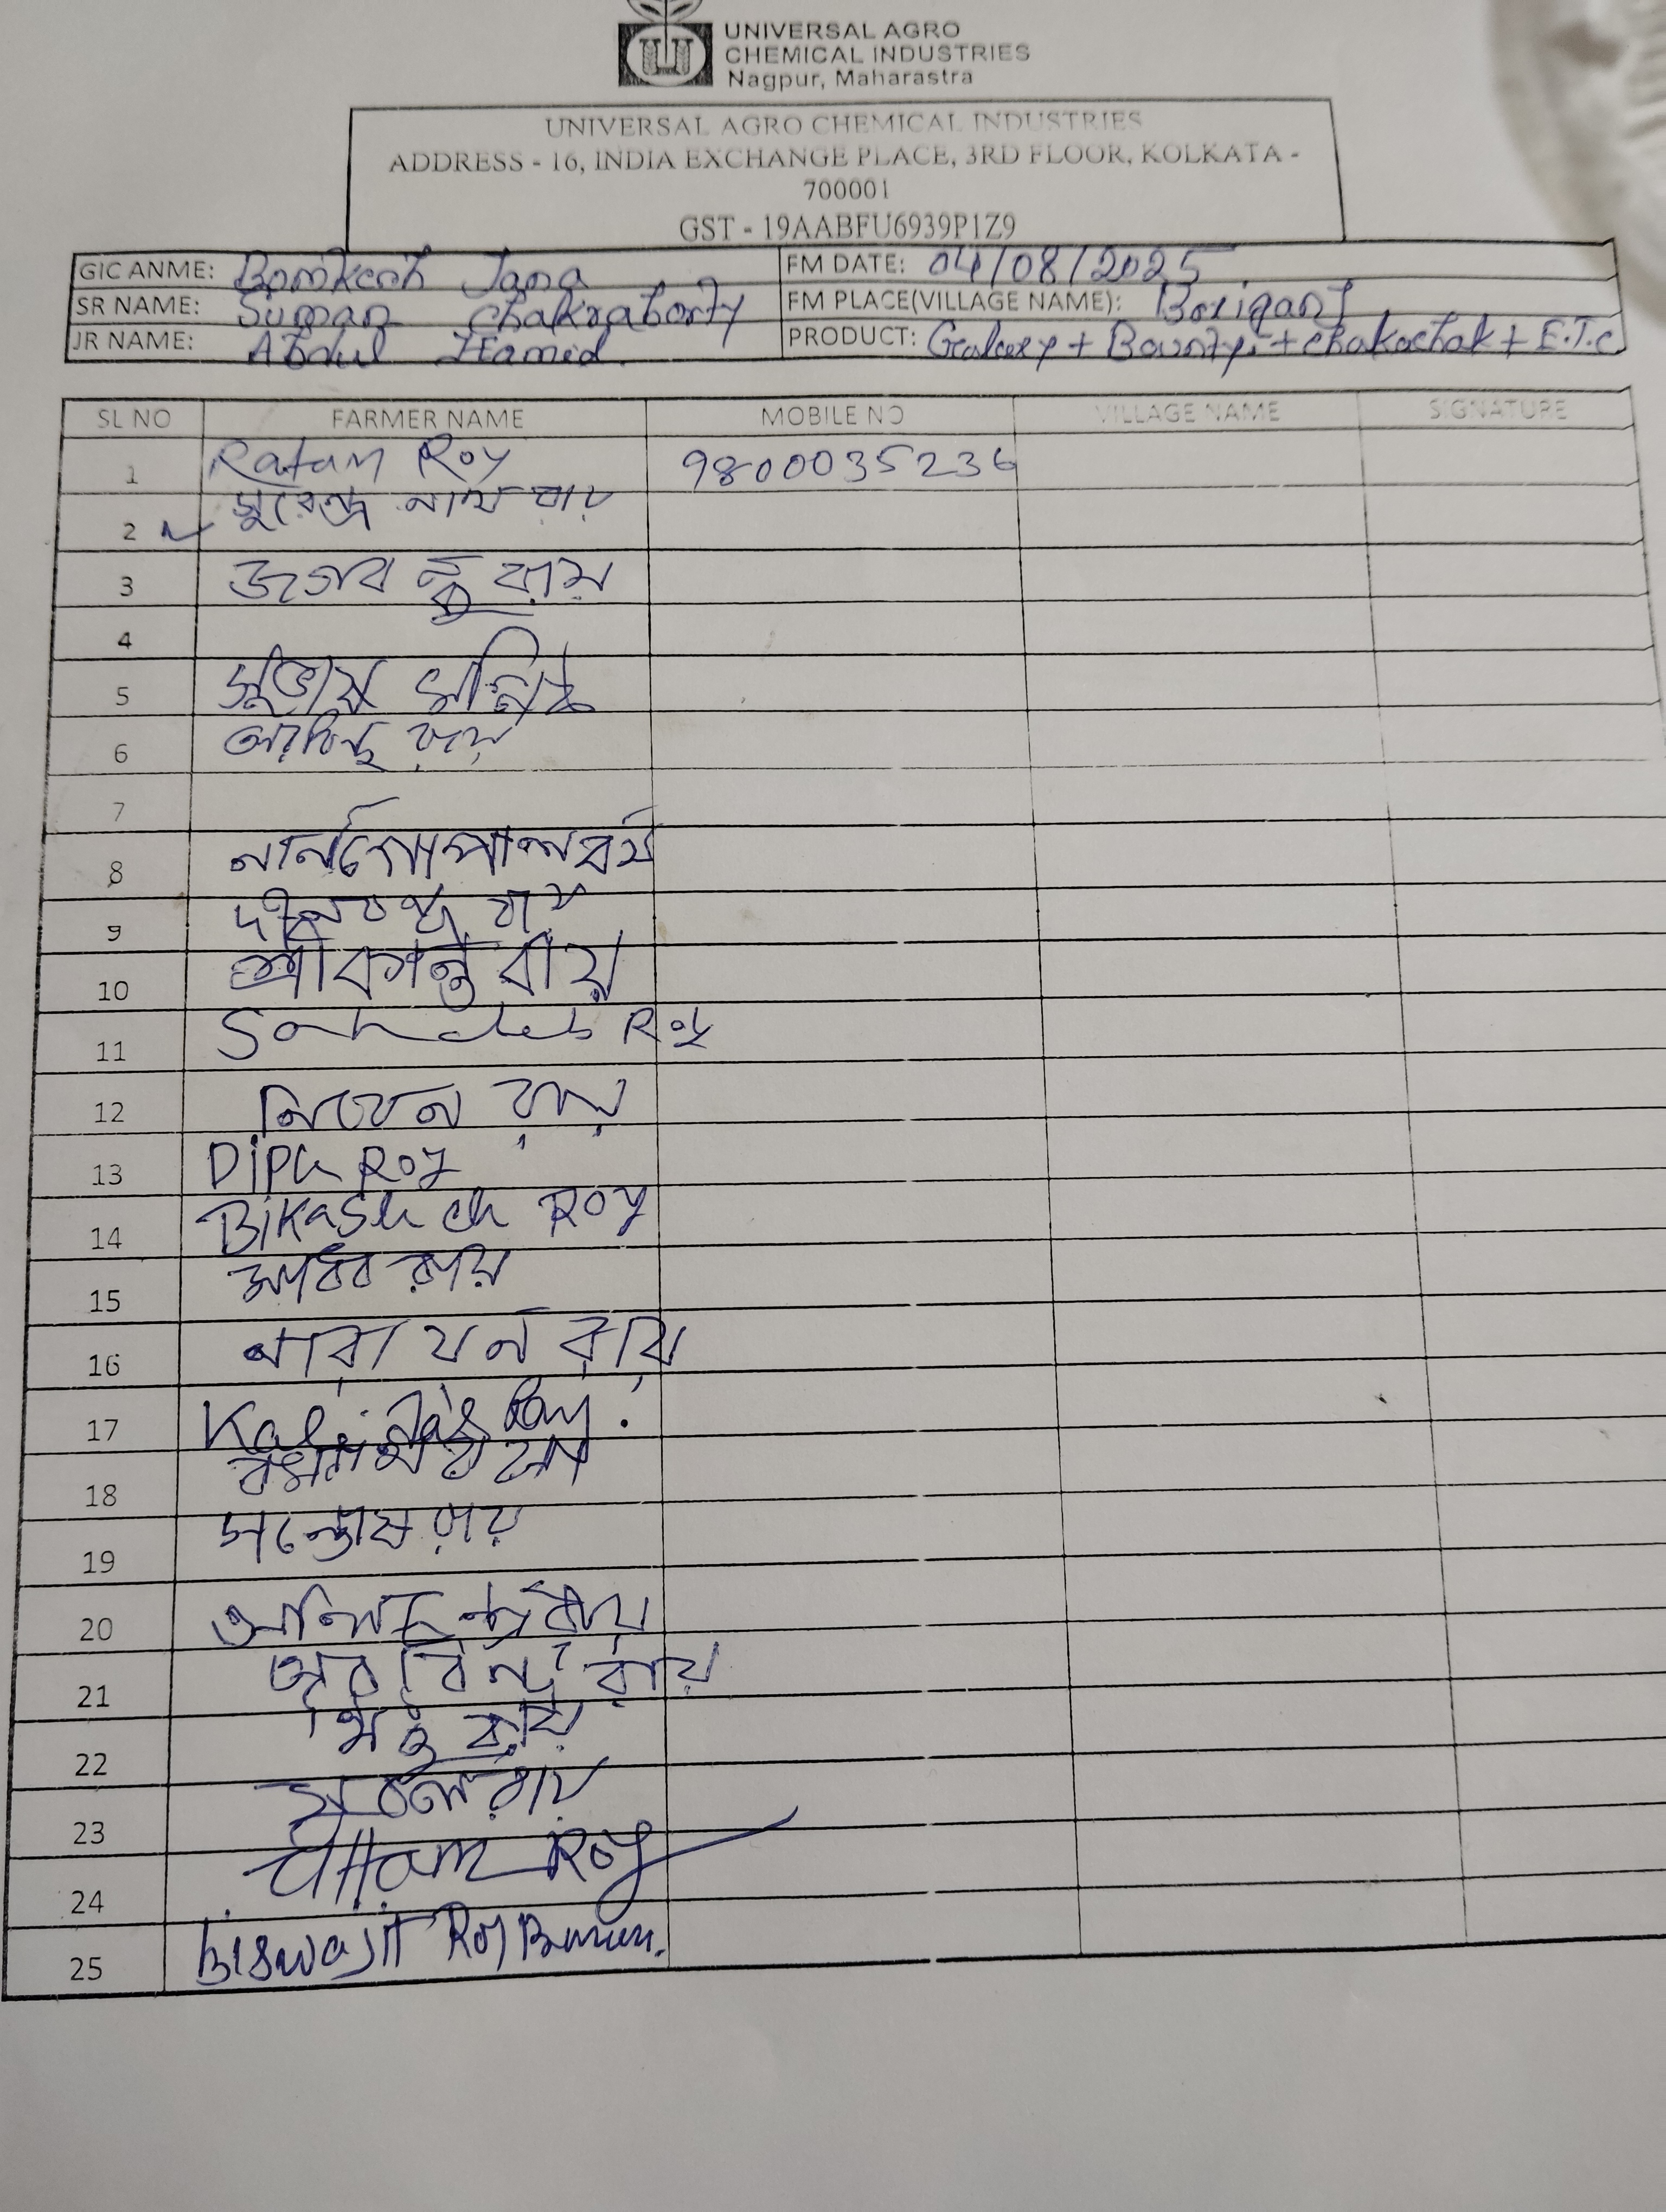 UNIVERSAL AGRO
CHEMICAL INDUSTRIES
Nagpur, Maharastra
UNIVERSAL AGRO CHEMICAL INDUSTRIES
ADDRESS - 16, INDIA EXCHANGE PLACE, 3RD FLOOR, KOLKATA -
700001
GST - 19AABFU6939P1Z9
GIC ANME: Bomkesh Jana FM DATE: 04/08/2025
SR NAME: Suman Chakraborty FM PLACE(VILLAGE NAME):
JR NAME: Abdul Hamid. PRODUCT: Galaxy + Bounty + chakachak + E.T.C
SL NO FARMER NAME MOBILE NO VILLAGE NAME SIGNATURE
1 Ratan Roy 9800035236
2 সুরেন্দ্র নাথ রায়
3 জগবন্ধু রায়
4
5 সুভাষ
6 রায়
7
8
9 রায়
10 শ্রীকান্ত রায়
11 Sahadeb Roy
12 রায়
13 Dipu Roy
14 Bikash ch Roy
15 মাধব রায়
16 নারায়ন রায়
17 Kali Das Roy.
18
19 সন্তোষ রায়
20 রায়
21 অরবিন্দ রায়
22 রায়
23 রায়
24 Uttam Roy
25 Biswajit Roy Barman.